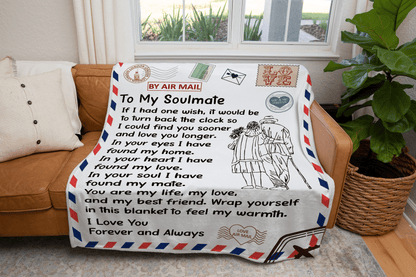 LOVE
BY AIR MAIL
To My Soulmate
If I had one wish, it would be
to turn back the clock so
I could find you sooner
and love you longer.
In your eyes I have
found my home.
In your heart I have
found my love.
In your soul I have
found my mate.
You are my life, my love,
and my best friend. Wrap yourself
in this blanket to feel my warmth.
I Love You
Forever and Always
LOVE
AIR MAIL